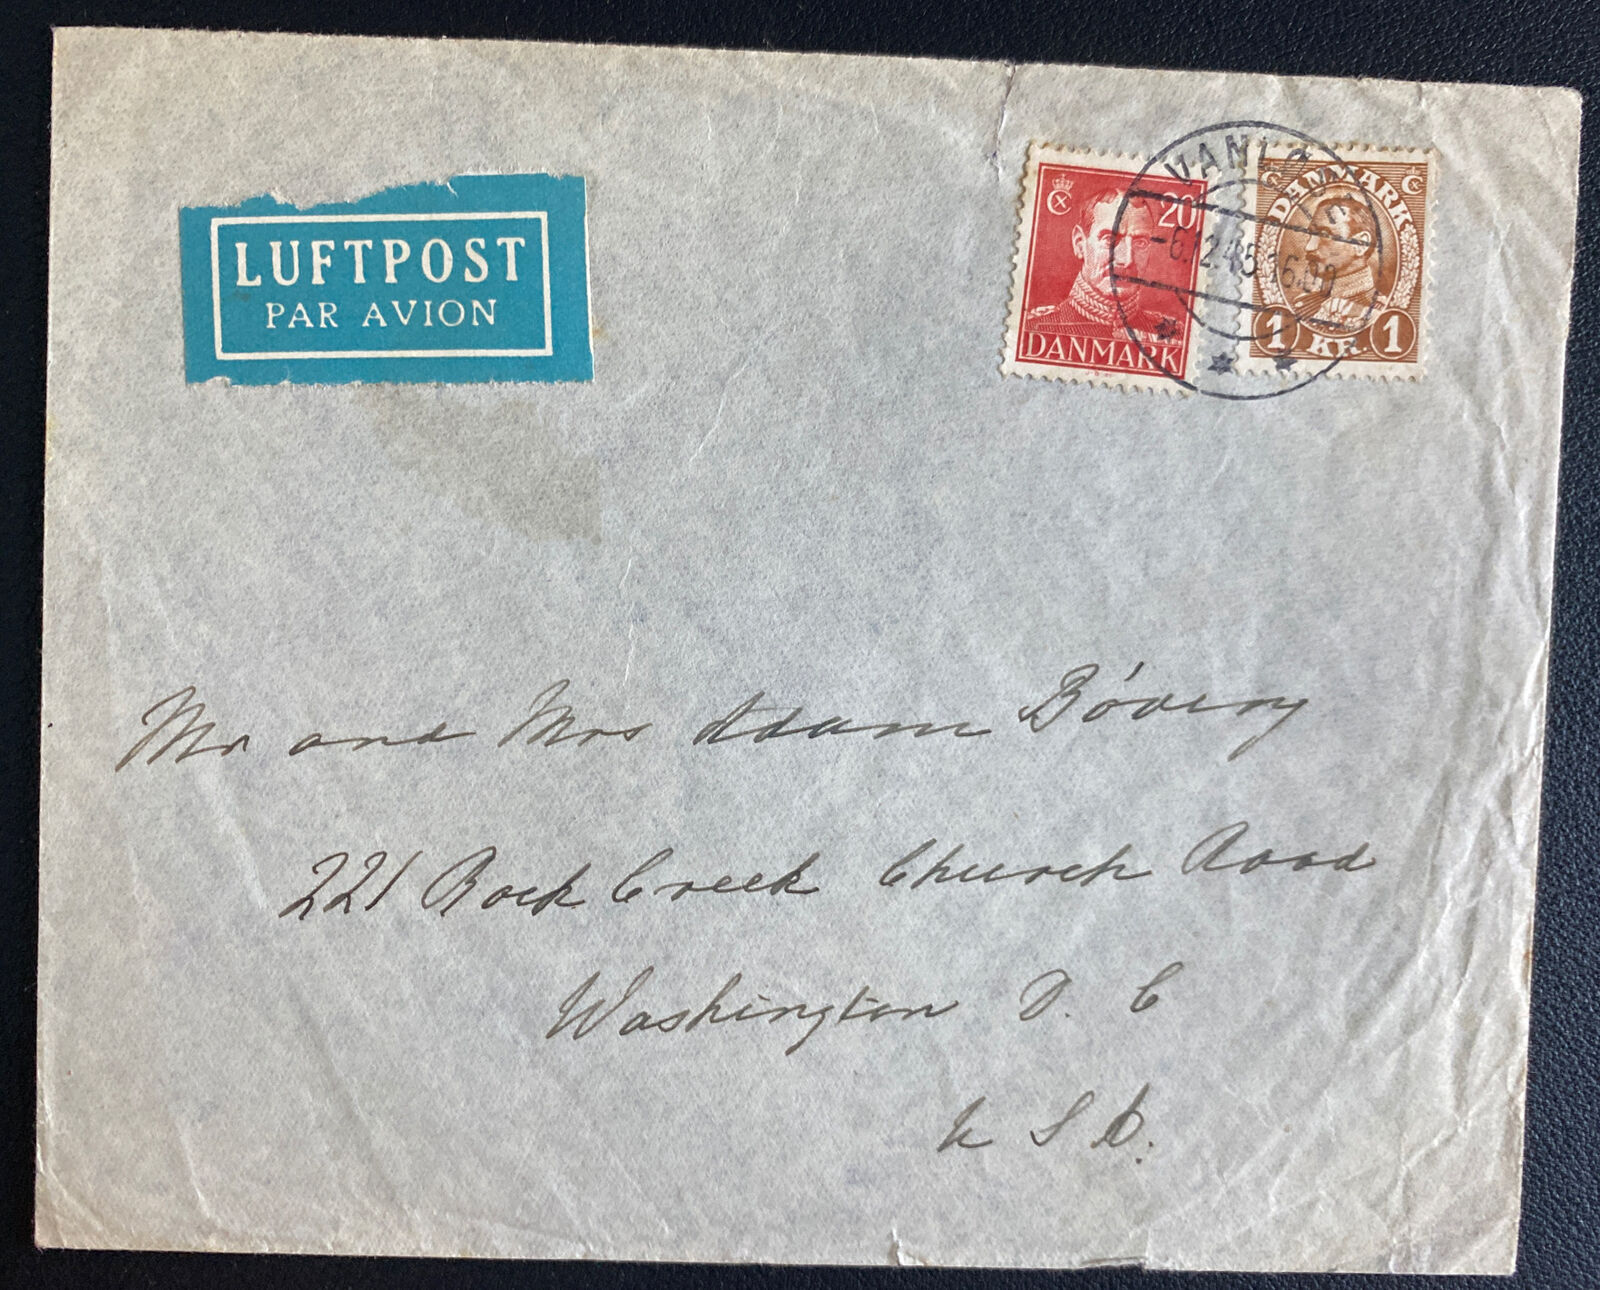 LUFTPOST
PAR AVION
20
DANMARK
DANMARK
1 KR. 1
VANLØ
-6.12.45 16.00
Mr and Mrs Adam Bövery
221 Rock Creek Church Road
Washington D. C
U S A.